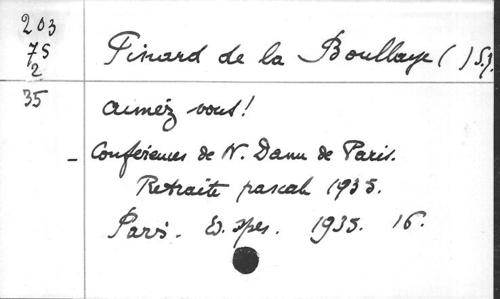 203
75
2
35
Pinard de la Boullaye ( ) S.J.
aimez vous!
- Conférences de N. Dame de Paris.
Retraite pascale 1935.
Paris. Ed. Spes. 1935. 16.